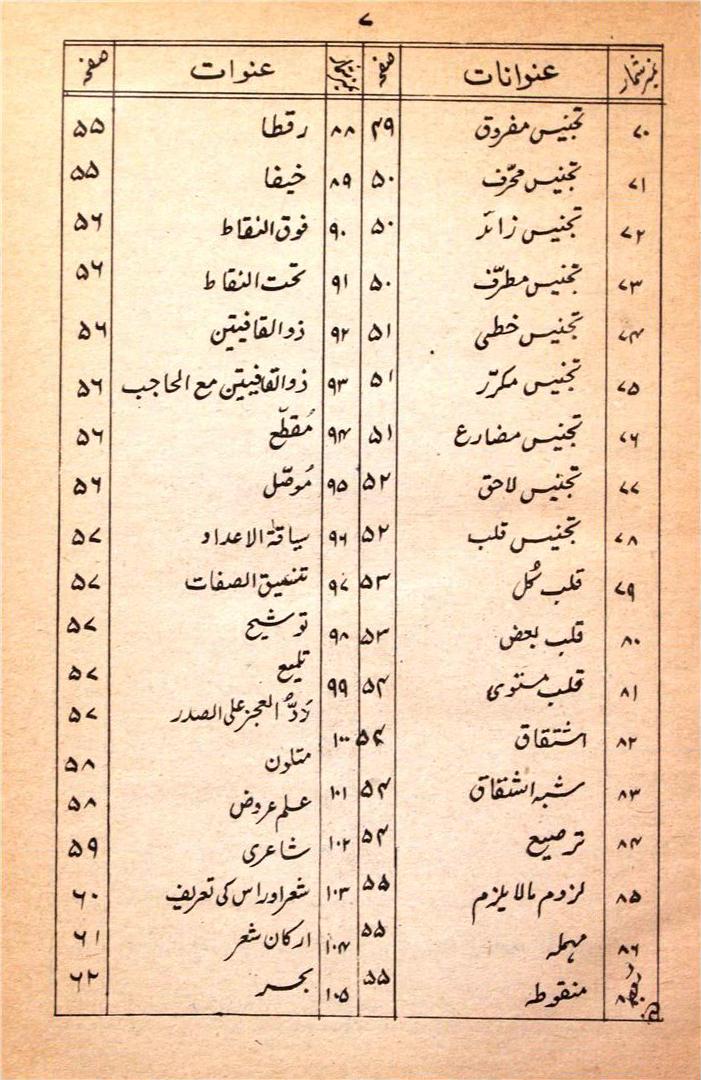 ۷
نمبر شمار عنوانات صفحہ نمبر شمار عنوات صفحہ
۷۰ تجنیس مفروق ۴۹ ۸۸ رقطا ۵۵
۷۱ تجنیس محرّف ۵۰ ۸۹ خیفا ۵۵
۷۲ تجنیس زائد ۵۰ ۹۰ فوق النقاط ۵۶
۷۳ تجنیس مطرّف ۵۰ ۹۱ تحت النقاط ۵۶
۷۴ تجنیس خطی ۵۱ ۹۲ ذوالقافیتین ۵۶
۷۵ تجنیس مکرّر ۵۱ ۹۳ ذوالقافیتین مع الحاجب ۵۶
۷۶ تجنیس مضارع ۵۱ ۹۴ مُقطّع ۵۶
۷۷ تجنیس لاحق ۵۲ ۹۵ مُوصّل ۵۶
۷۸ تجنیس قلب ۵۲ ۹۶ سیاقۃ الاعداد ۵۷
۷۹ قلب کُل ۵۳ ۹۷ تنسیق الصفات ۵۷
۸۰ قلب بعض ۵۳ ۹۸ توشیح ۵۷
۸۱ قلب مستوی ۵۴ ۹۹ تلمیع ۵۷
ردُّ العجز علی الصدر ۵۷
۸۲ اشتقاق ۵۴ ۱۰۰ متلون ۵۸
۸۳ شبہ اشتقاق ۵۴ ۱۰۱ علم عروض ۵۸
۸۴ ترصیع ۵۴ ۱۰۲ شاعری ۵۹
۸۵ لزوم مالا یلزم ۵۵ ۱۰۳ شعر اور اس کی تعریف ۶۰
۸۶ مہملہ ۵۵ ۱۰۴ ارکان شعر ۶۱
منقوطہ ۵۵ ۱۰۵ بحر ۶۲